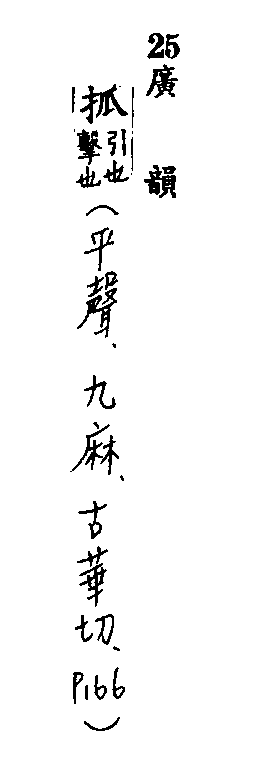 25廣韻
抓引也擊也(平聲、九麻、古華切、P166)